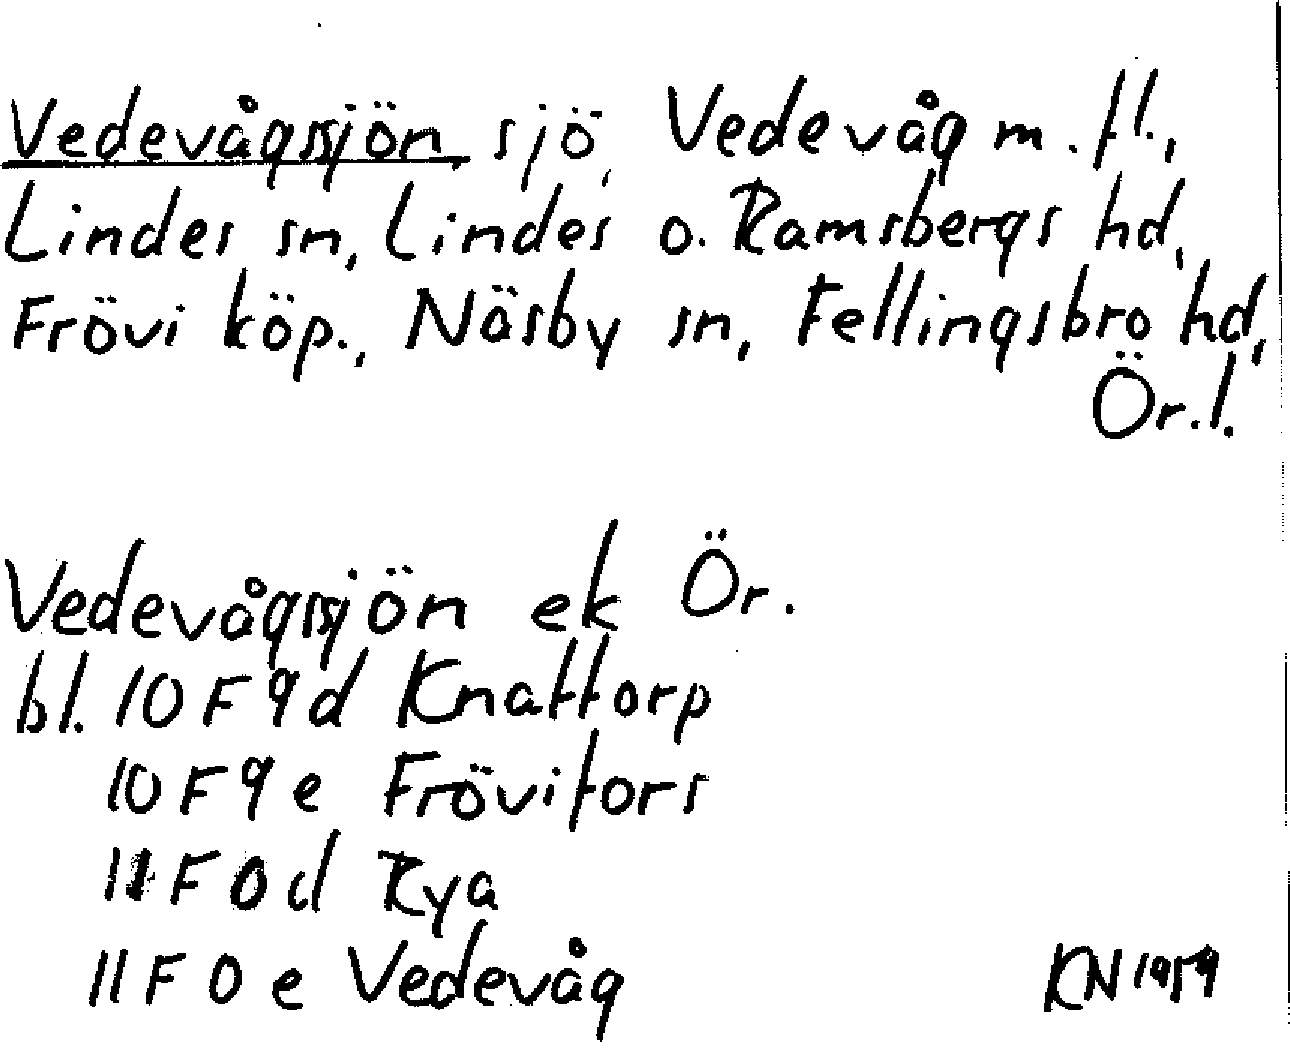 Vedevågssjön, sjö, Vedevåg m. fl.,
Lindes sn, Lindes o. Ramsbergs hd,
Frövi köp., Näsby sn, Fellingsbro hd,
Ör. l.
Vedevågssjön ek Ör.
bl. 10 F 9 d Knattorp
10 F 9 e Frövifors
11 F 0 d Rya
11 F 0 e Vedevåg
KN 1959